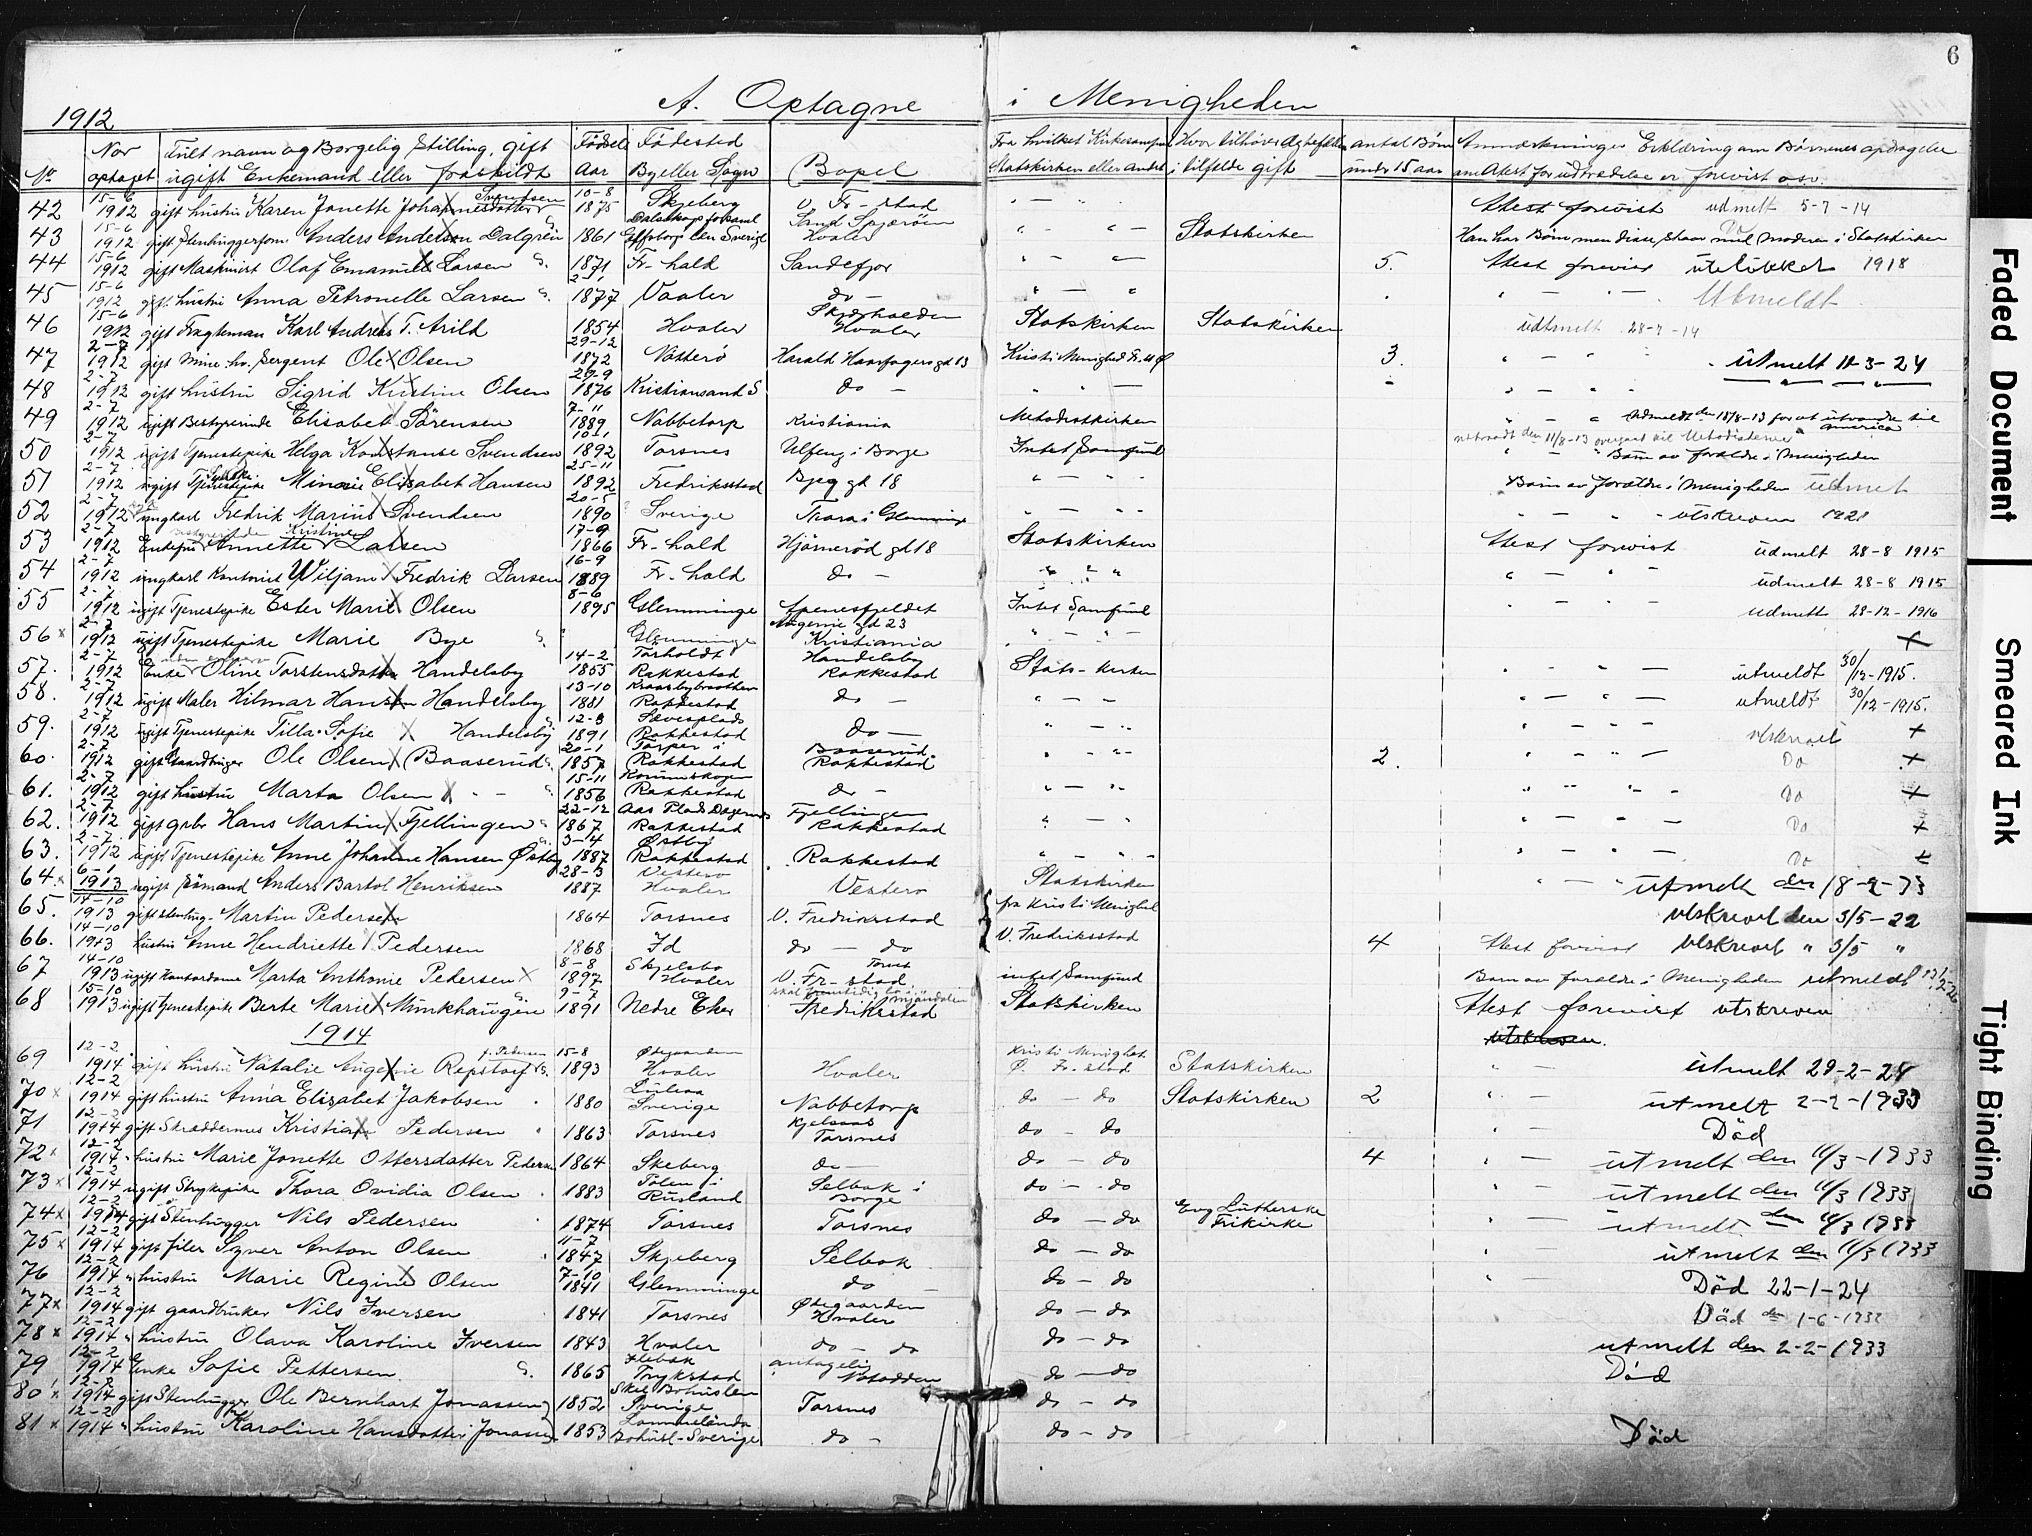 6
A. Optagne i Menigheden
1912
No Naar optaget Fult navn og Borgelig Stilling, gift ugift Enkemand eller fraskildt Fødsels Aar Fødested By eller Sogn Bopel Fra hvilket Kirkesamfun Statskirken eller andet i tilfelde gift antal Børn under 15 aar Anmærkninger Erklæring om Børnenes opdragelse om Atest for udtrædelse er forevist osv.
42 15-6 1912 gift hustru Karen Jonette Johannesdatter Svendsen 10-8 1875 Skjeberg V. Fr-stad " — " Attest forevist udmelt 5-7-14
43 15-6 1912 gift Stenhuggerform Anders Andersen Dalgren 1861 Hvaler " — " Statskirken Han har Børn men disse staar med Moderen i Statskirken
44 15-6 1912 gift Maskinist Olaf Emanuel Larsen 1871 Fr-hald Sandefjor " — " 5. Attest forevist utelukket 1918
45 15-6 1912 gift hustru Anna Petronelle Larsen 2-1 1877 Vaaler do — " — " Utmeldt
46 15-6 1912 gift Fragteman Karl Andreas T. Arild 1854 Hvaler Skjærhalden Hvaler Statskirken Statskirken udtmelt 28-7-14
47 2-7 1912 gift Mine.hv. Sergent Ole Olsen 29-12 1872 Nøtterø Harald Haarfagers gd 13 Kristi Menighed Fr. st Ø 3. utmelt 11-3-24
48 2-7 1912 gift hustru Sigrid Kristine Olsen 29-9 1876 Kristiansand S do — " " —
49 2-7 1912 ugift Bestyrerinde Elisabet Sørensen 7-11 1889 Nabbetorp Kristiania Metodistkirken Udmeldt den 18/8-13 for at utvandre til America
50 2-7 1912 ugift Tjenestepike Helga Konstanse Svendsen 10-1 1892 Torsnes Ulfeng i Borge Intet Samfund utraadt den 11/8-13 overgaat til Metodisterne Børn av forældre i Menigheden
51 2-7 1912 ugift Tjenestepike Minnie Elisabet Hansen 25-11 1892 Fredriksstad Bjeg gd 18 " — " Barn av forældre i Menigheden udmet
52 2-7 1912 ungkarl Fredrik Marius Svendsen 20-5 1890 Sverige Trara i Glemminge " — " utskreven 1921
53 2-7 1912 Enkefru Annette Kristine Larsen 17-9 1866 Fr-hald Hjørnerød gd 18 Statskirken Attest forevist udmelt 28-8 1915
54 2-7 1912 ungkarl Kontorist Wiljam Fredrik Larsen 16-9 1889 Fr-hald do — " " " udmelt 28-8 1915
55 2-7 1912 ugift Tjenestepike Ester Marie Olsen 8-6 1895 Glemminge Apenesfjeldet Intet Samfund udmelt 28-12-1916
56x 2-7 1912 ugift Tjenestepike Marie Bye Glemminge gd 23 Kristiania " — " — +
57. 2-7 1912 Enke Oline Torstensdatter Handelsby 14-2 1855 Torholdt Rakkestad Handelsby Rakkestad Stats-kirken utmeldt 30/12-1915.
58. 2-7 1912 ugift Maler Hilmar Hansen Handelsby 13-10 1881 Rakkestad do — " — " utmeldt 30/12-1915.
59. 2-7 1912 ugift Tjenestepike Tilla Sofie Handelsby 12-3 1891 Rakkestad do — " — " utskrevet +
60. 2-7 1912 gift Gaardbruger Ole Olsen Baaserud 20-1 1857 Torper i Rakkestad Baaserud Rakkestad " — " 2. Do +
61. 2-7 1912 gift hustru Marta Olsen — " — 15-11 1856 Rakkestad do — " — " Do +
62. 2-7 1912 gift grbr Hans Martin Fjellingen 22-12 1867 Rakkestad Fjellingen Rakkestad " — " Do +
63. 2-7 1912 ugift Tjenestepike Anne Johanne Hansen Østby 3-4 1887 Østby Rakkestad Rakkestad " — " Do +
64.x 6-1 1913 ugift Sømand Anders Bartol Henriksen 28-3 1887 Vesterø Hvaler Vesterø Statskirken utmelt den 18-2-33
65. 14-10 1913 gift stenhug- Martin Pedersen 1864 Torsnes V. Fredriksstad fra Kristi Menighed utskrevet den 3/5-22
66. 14-10 1913 hustru Anne Hendriette Pedersen 1868 Id do — do V. Fredriksstad 4 Attest forevist utskrevet " 3/5 "
67 14-10 1913 ugift Kontordame Marta Anthonie Pedersen 8-8 1897 Skjelsbo Hvaler V. Fr-stad intet Samfund Barn av forældre i Menigheden utmeldt
68 15-10 1913 ugift Tjenestepike Berte Marie Munkhaugen 9-7 1891 Nedre Eker Fredriksstad Statskirken Attest forevist utskreven
1914
utskreven.
69 12-2 1914 gift hustru Natalie Angenie Repstorf f. Pedersen 15-8 1893 Ødegaarden Hvaler Hvaler Kristi Menighet Ø. Fr. stad Statskirken utmelt 29-2-28
70x 12-2 1914 gift hustru Anna Elisabet Jakobsen 1880 Sverige Nabbetorp do — do Statskirken 2 utmelt 2-2-1933
71 12-2 1914 gift Skræddermes Kristian Pedersen 1863 Torsnes Kjelsaas Torsnes do — do Død
72x 12-2 1914 " hustru Marie Jonette Ottersdatter Pedersen 1864 Skeberg do — do — do 4 utmelt den 11/3-1933
73x 12-2 1914 ugift Strykepike Thora Ovidia Olsen 1883 Rusland Selbak i Borge do — do utmelt den 11/3 1933
74x 12-2 1914 gift Stenhugger Nils Pedersen 1874 Torsnes Torsnes do — do Evg Lutherske Frikirke utmelt den 11/3 1933
75x 12-2 1914 gift filer Syver Anton Olsen 11-7 1847 Skjeberg Selbak do — do utmelt den 11/3 1933
76 12-2 1914 " hustru Marie Regine Olsen 7-10 1841 Glemminge do do — do Död 22-1-24
77x 12-2 1914 gift gaardbruker Nils Iversen 1841 Torsnes Ødegaarden Hvaler do — do Död den 1-6-1932
78x 12-2 1914 " hustru Olava Karoline Iversen 1843 Hvaler do — do do — do utmelt den 2-2-1933
79 12-2 1914 Enke Sofie Pettersen 1865 Trykstad antagelig Notodden do — do Död
80x 12-2 1914 gift Stenhugger Ole Bernhart Jonassen 1852 Sverige Torsnes do — do
81x 12-2 1914 " hustru Karoline Hansdatter Jonassen 1853 Bohusl-Sverige do — do — do Död
Faded Document
Smeared Ink
Tight Binding